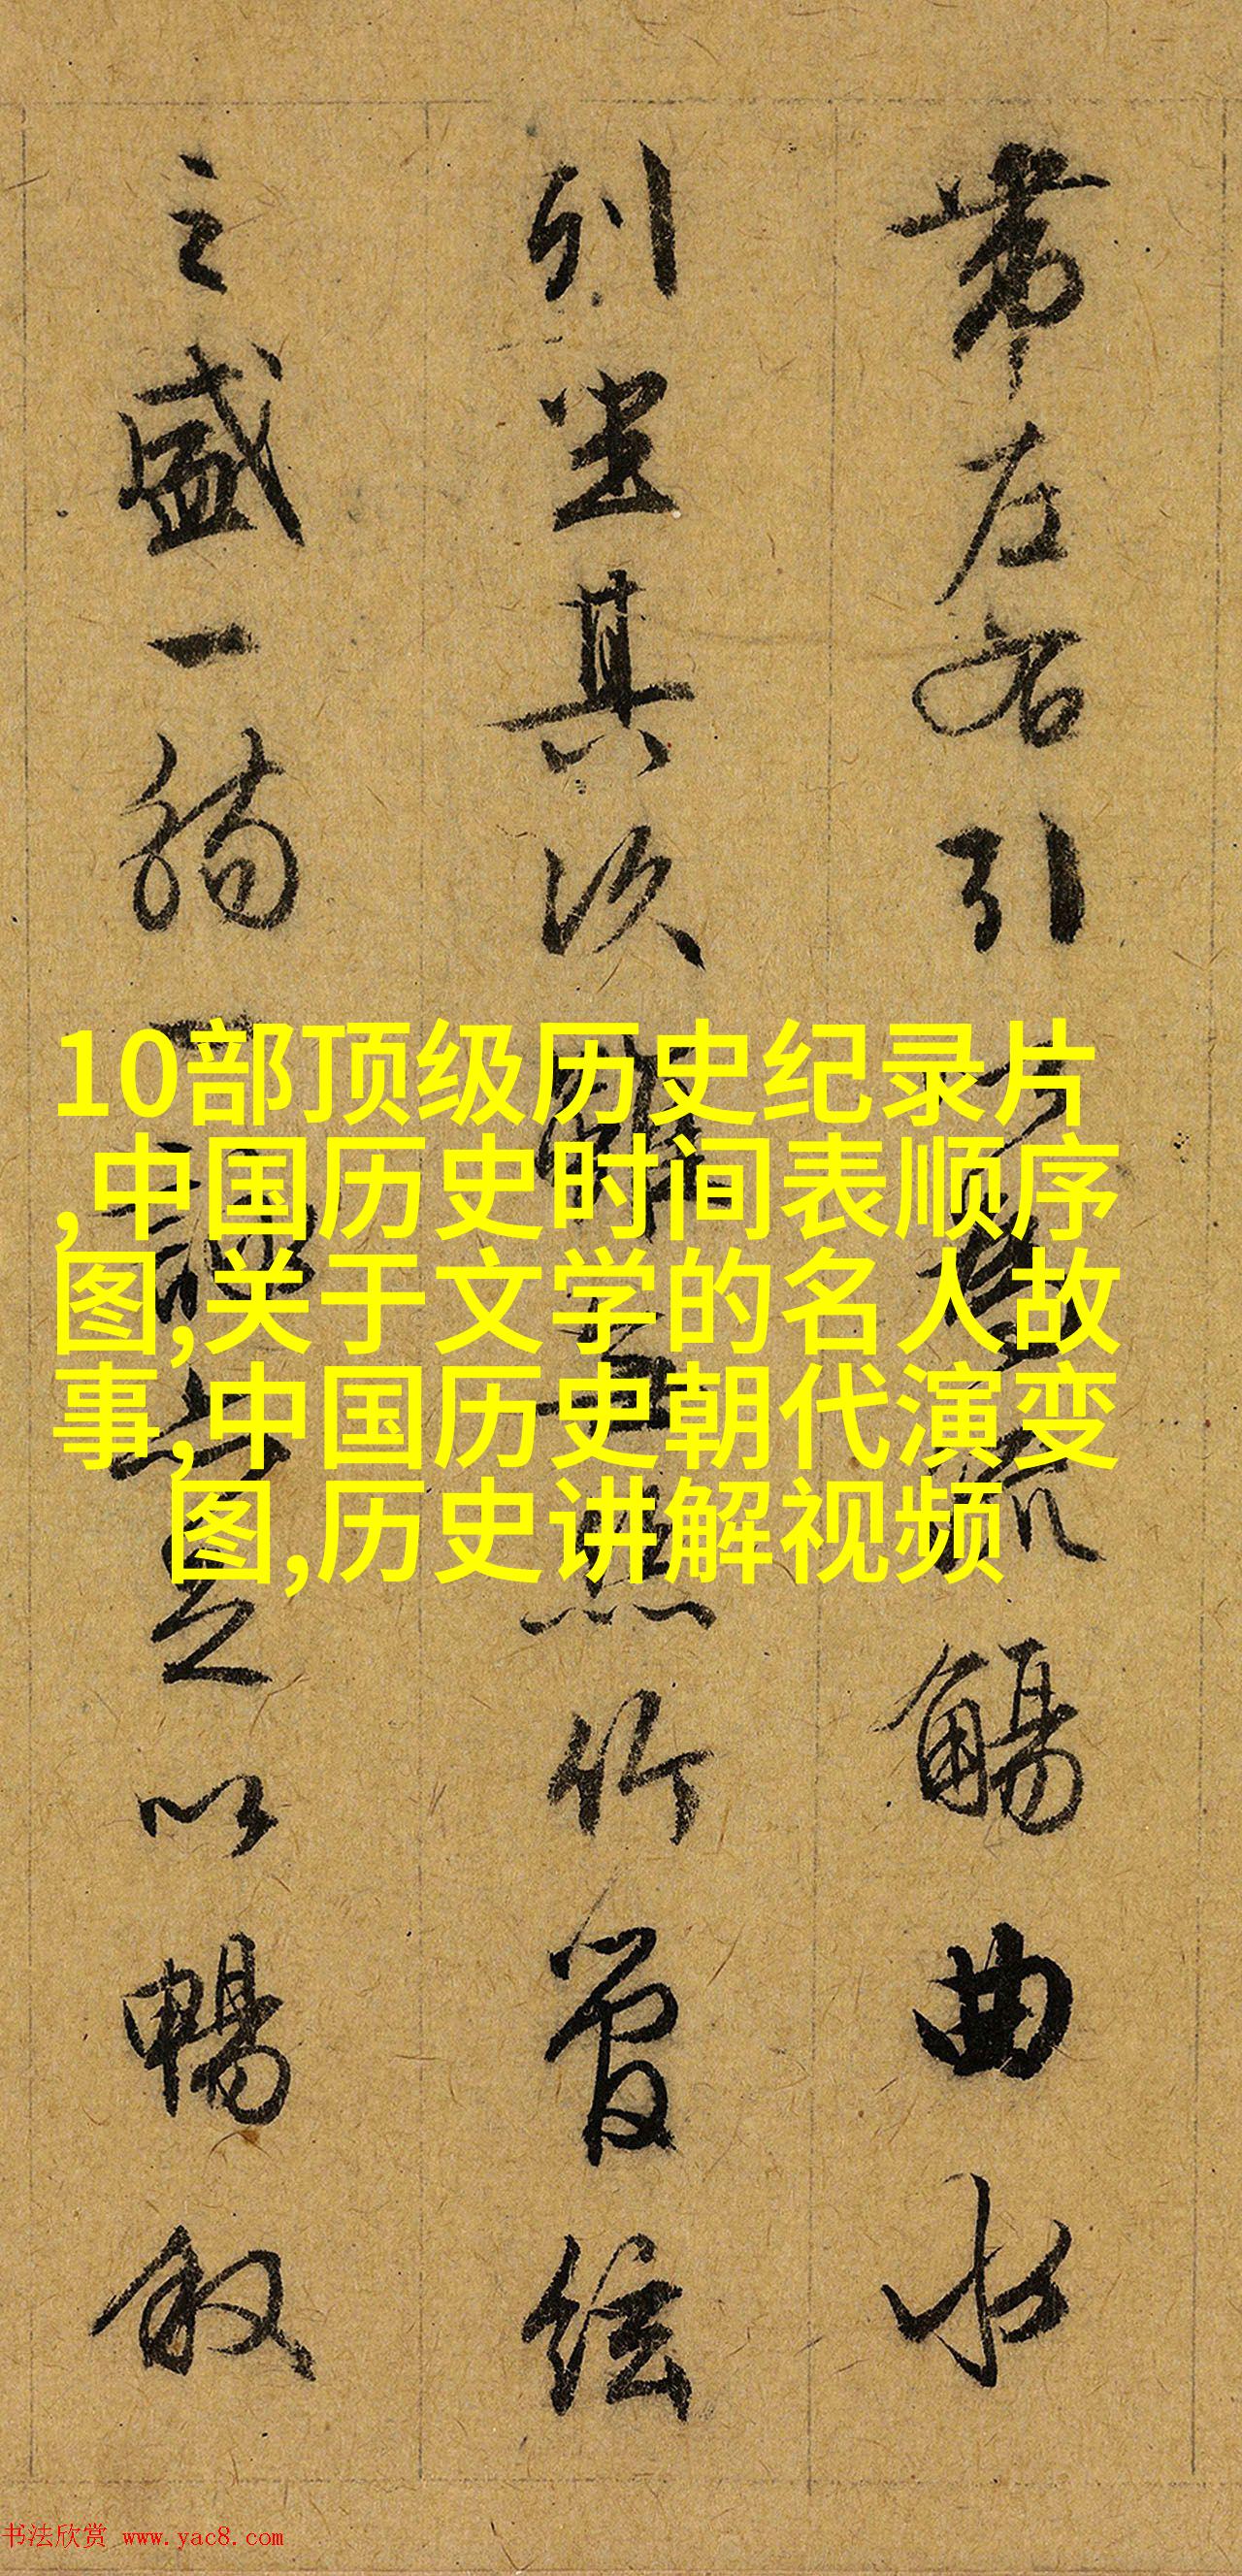 帶左右引以為流觴曲水
列坐其次雖無絲竹管絃
之盛一觴一詠亦足以暢叙
10部顶级历史纪录片
,中国历史时间表顺序
图,关于文学的名人故
事,中国历史朝代演变
图,历史讲解视频
书法欣赏 www.yac8.com